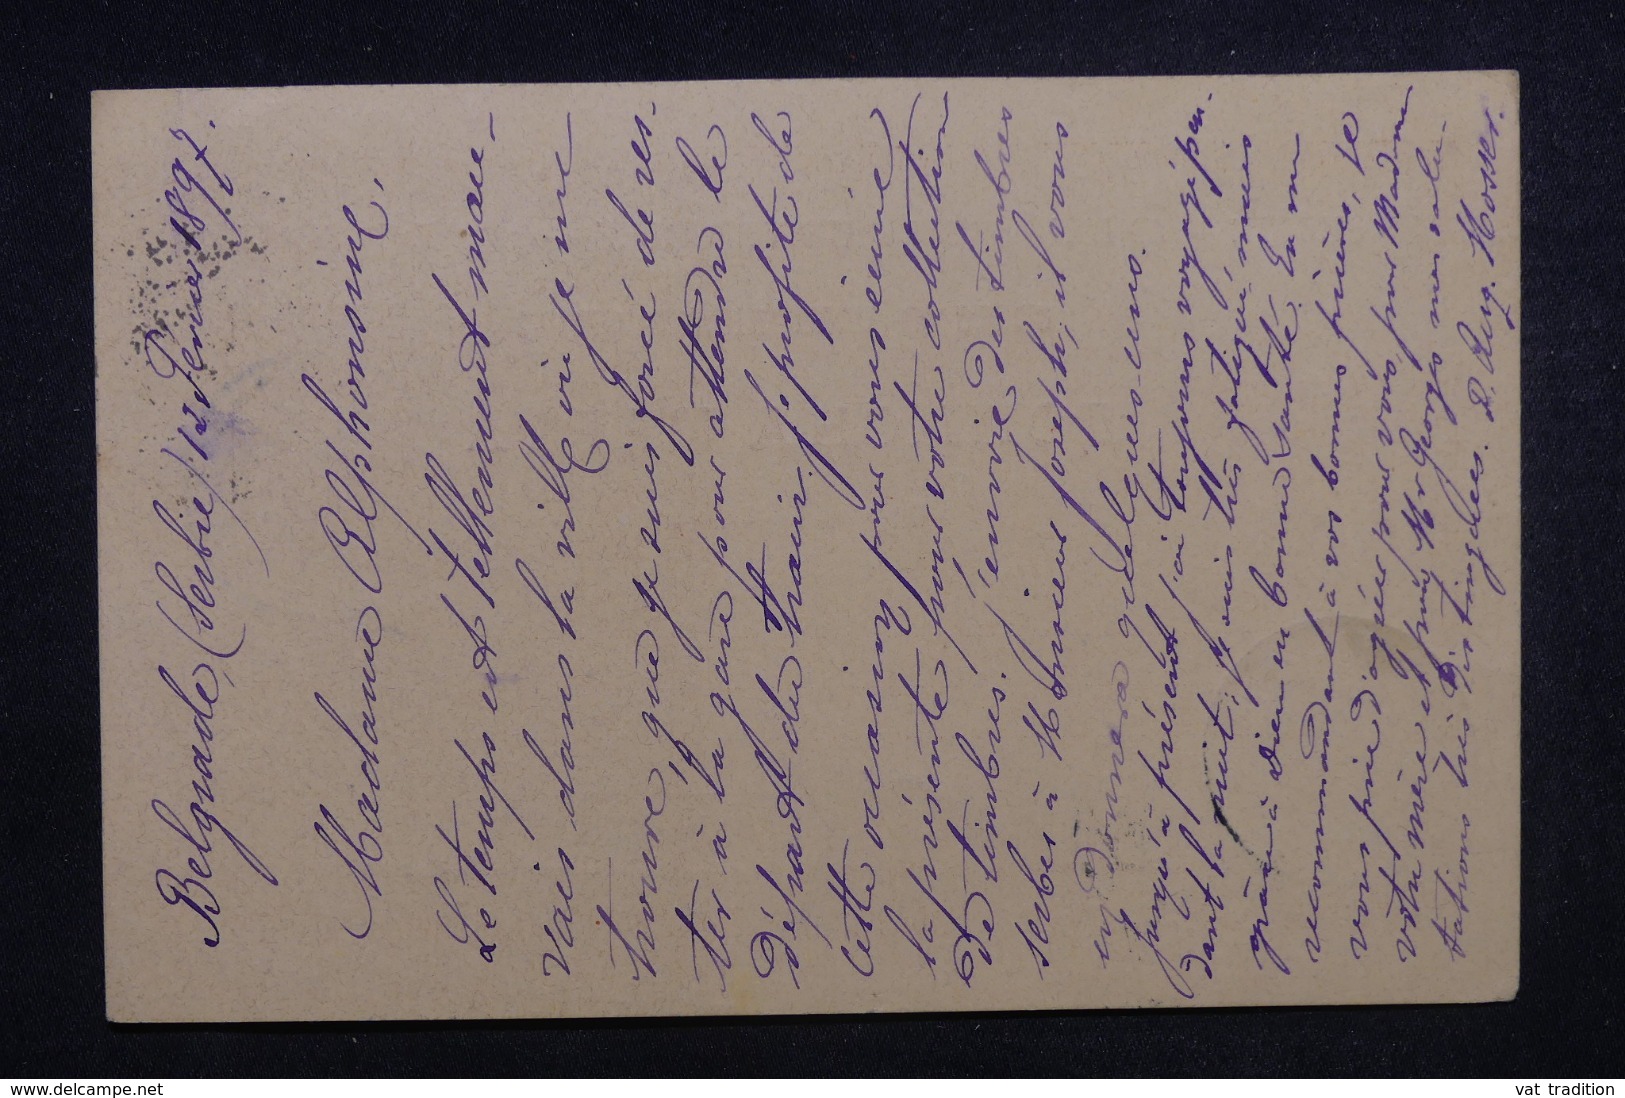 Belgrade, (Serbie) 12 Février 1897.
Madame Alphonsine,
Le temps est tellement mau-
vais dans la ville où je me
trouve, que je suis forcé de res-
ter à la gare pour attendre le
départ du train. Je profite de
cette occasion pour vous écrire
la présente pour votre collection
de timbres. J'envoie des timbres
serbes à Monsieur Joseph, il vous
en donnera quelques-uns.
jusqu'à présent j'ai toujours voyagé pen-
dant la nuit, je suis très fatigué, mais
grâce à Dieu en bonne santé. En me
recommandant à vos bonnes prières, je
vous prie d'agréer pour vous, pour Madame
votre mère et pour Mr Georges mes salu-
tations très distinguées. D. Aug. Mosser.
www.delcampe.net
vat tradition